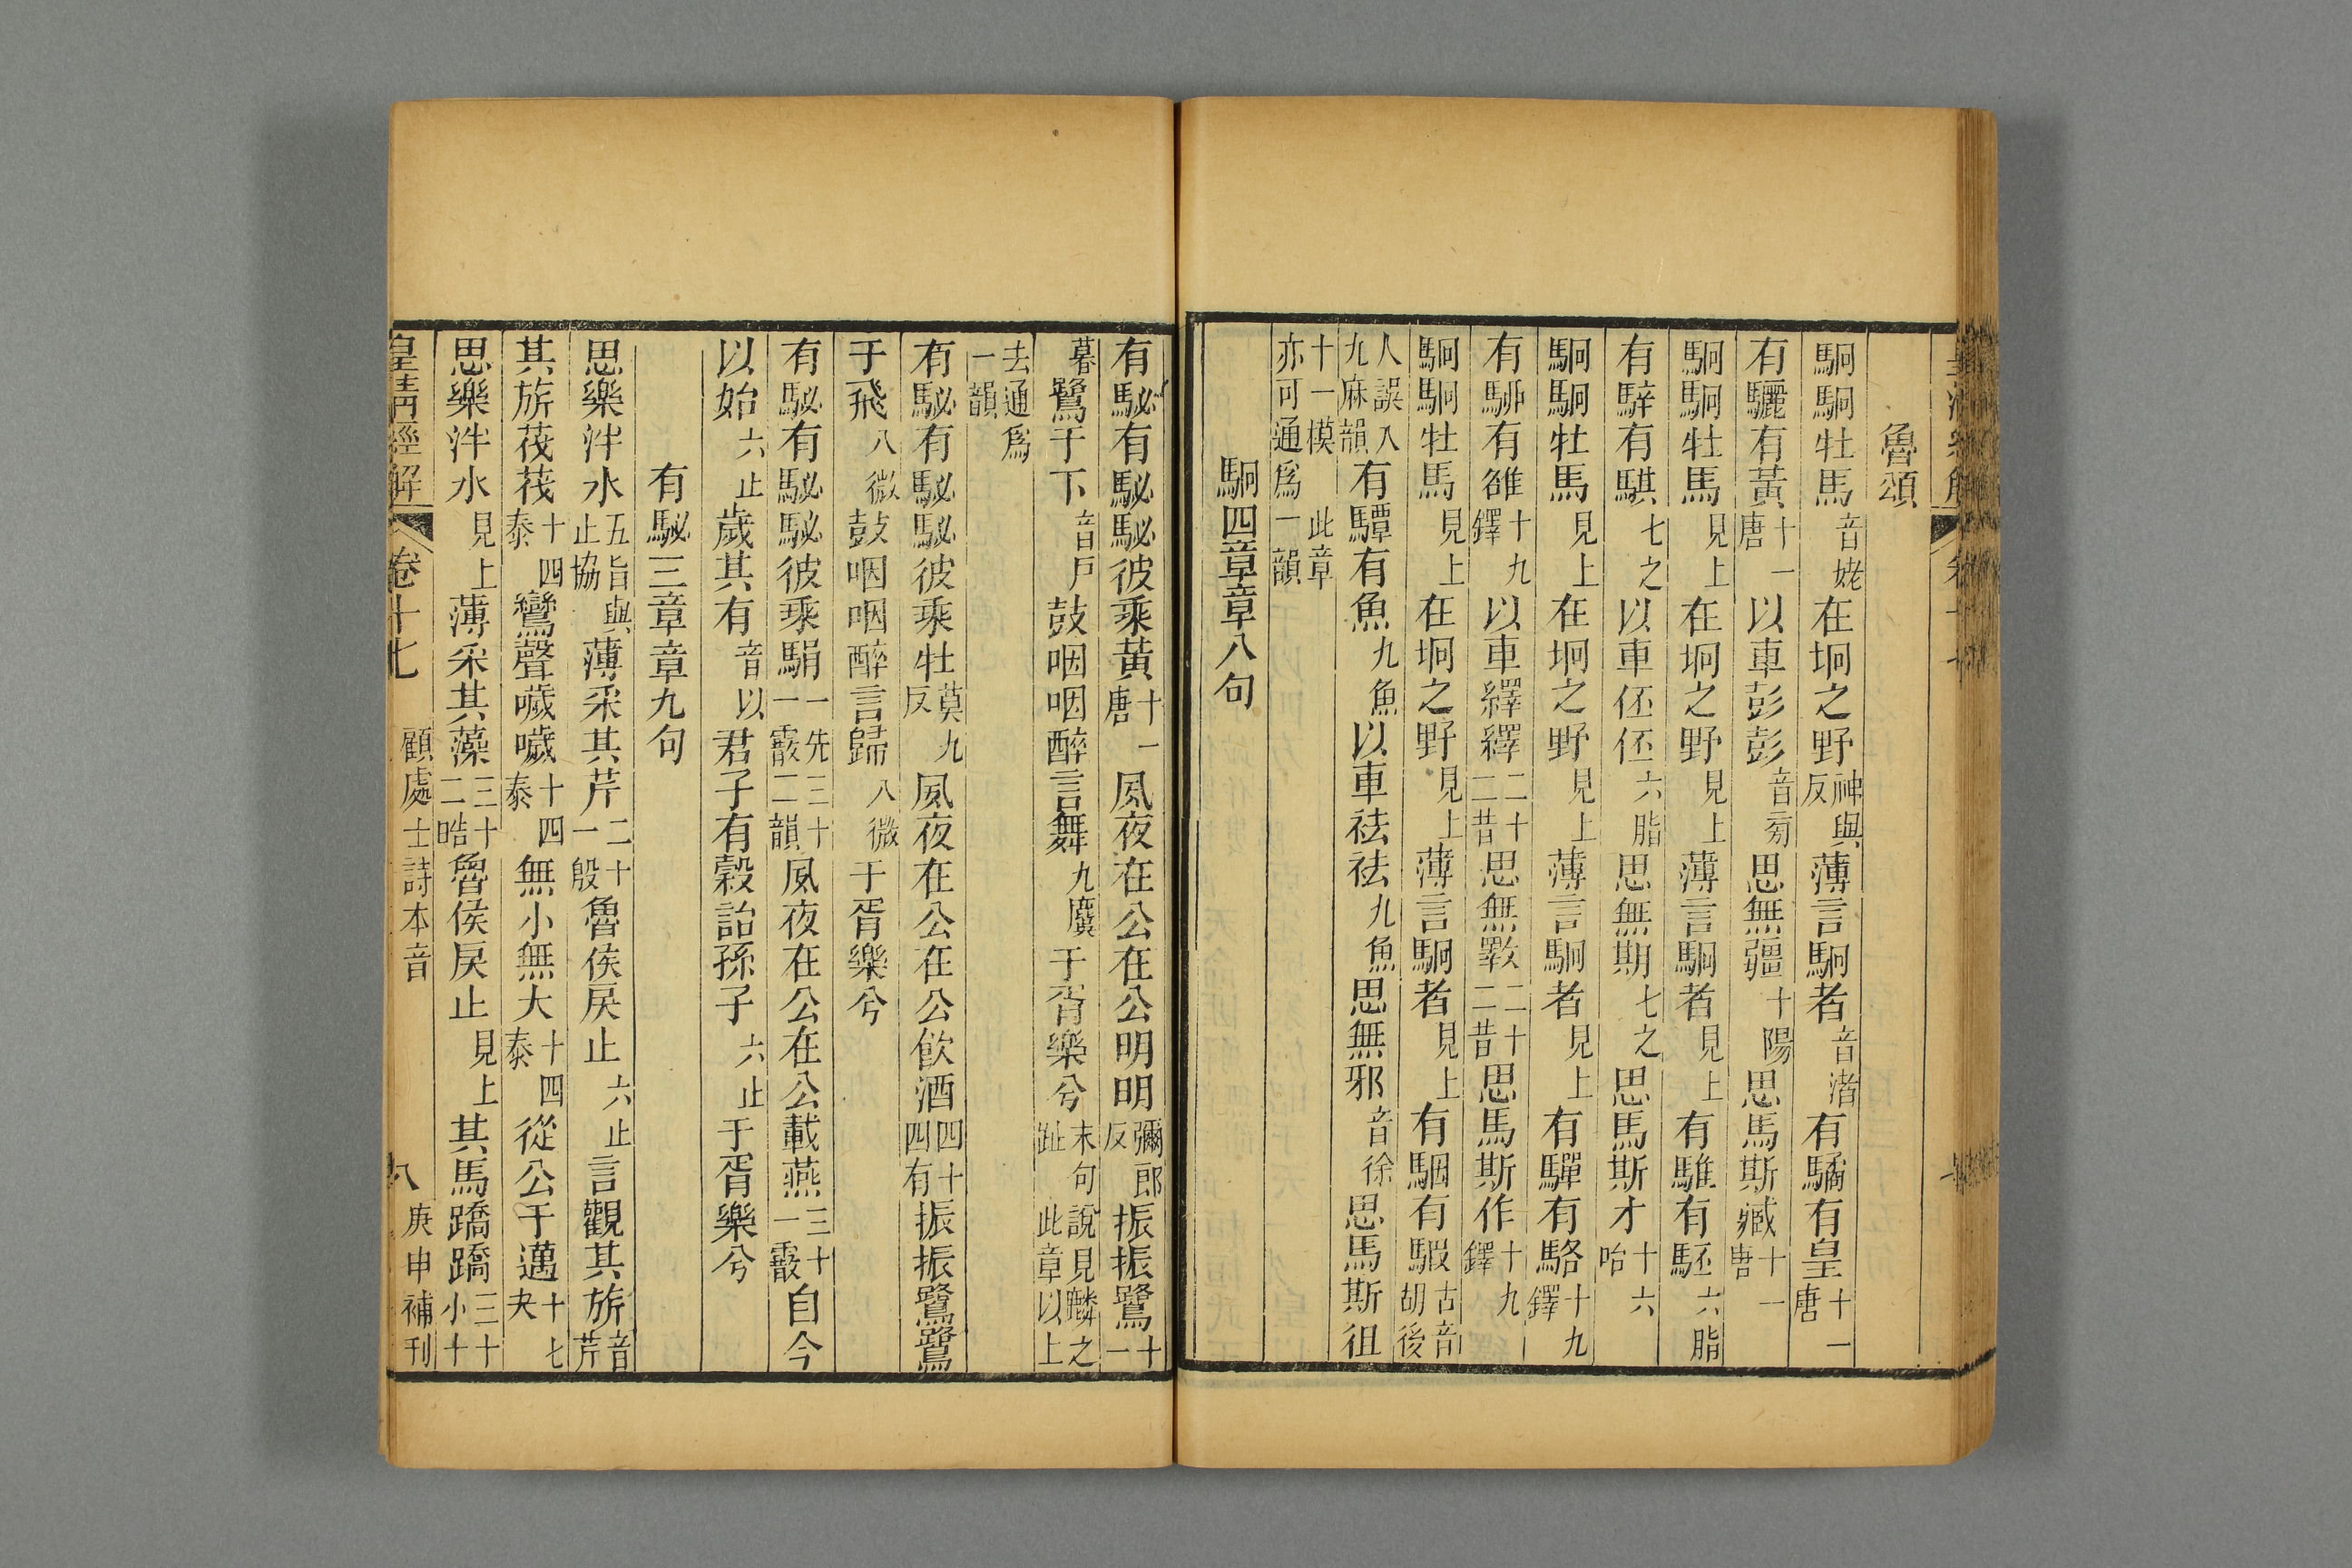 魯頌
駉駉牡馬音姥在坰之野神與反薄言駉者音渚有驈有皇十一唐
有驪有黃十一唐以車彭彭音旁思無疆十陽思馬斯臧十一唐
駉駉牡馬見上在坰之野見上薄言駉者見上有騅有駓六脂
有騂有騏七之以車伾伾六脂思無期七之思馬斯才十六咍
駉駉牡馬見上在坰之野見上薄言駉者見上有驒有駱十九鐸
有駵有雒十九鐸以車繹繹二十二昔思無斁二十二昔思馬斯作十九鐸
駉駉牡馬見上在坰之野見上薄言駉者見上有駰有騢古音胡後
人誤入九麻韻有驔有魚九魚以車袪袪九魚思無邪音徐思馬斯徂
十一模 此章亦可通爲一韻
駉四章章八句
有駜有駜駜彼乘黃十一唐夙夜在公在公明明彌郎反振振鷺十一
暮鷺于下音戶鼓咽咽醉言舞九麌于胥樂兮末句說見麟之趾 此章以上
去通爲一韻
有駜有駜駜彼乘牡莫九反夙夜在公在公飮酒四十四有振振鷺鷺
于飛八微鼓咽咽醉言歸八微于胥樂兮
有駜有駜駜彼乘駽一先三十一霰二韻夙夜在公在公載燕三十一霰自今
以始六止歲其有音以君子有穀詒孫子六止于胥樂兮
有駜三章章九句
思樂泮水五旨與止協薄采其芹二十一殷魯侯戾止六止言觀其旂音芹
其旂茷茷十四泰鸞聲噦噦十四泰無小無大十四泰從公于邁十七夬
思樂泮水見上薄采其藻三十二晧魯侯戾止見上其馬蹻蹻三十小十
皇清經解 卷十七 顧處士詩本音 八 庚申補刊